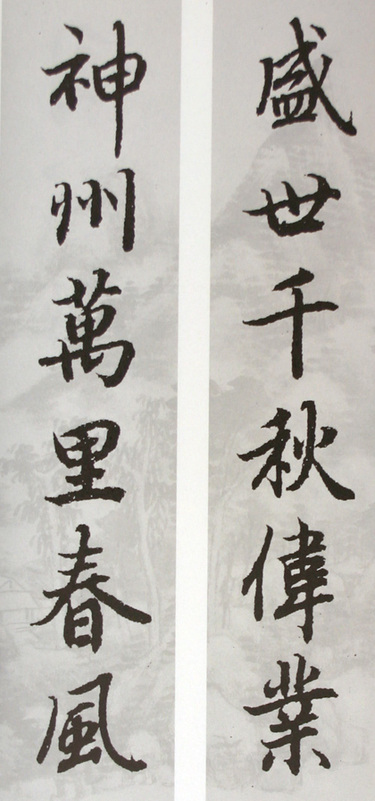 盛世千秋偉業
神州萬里春風